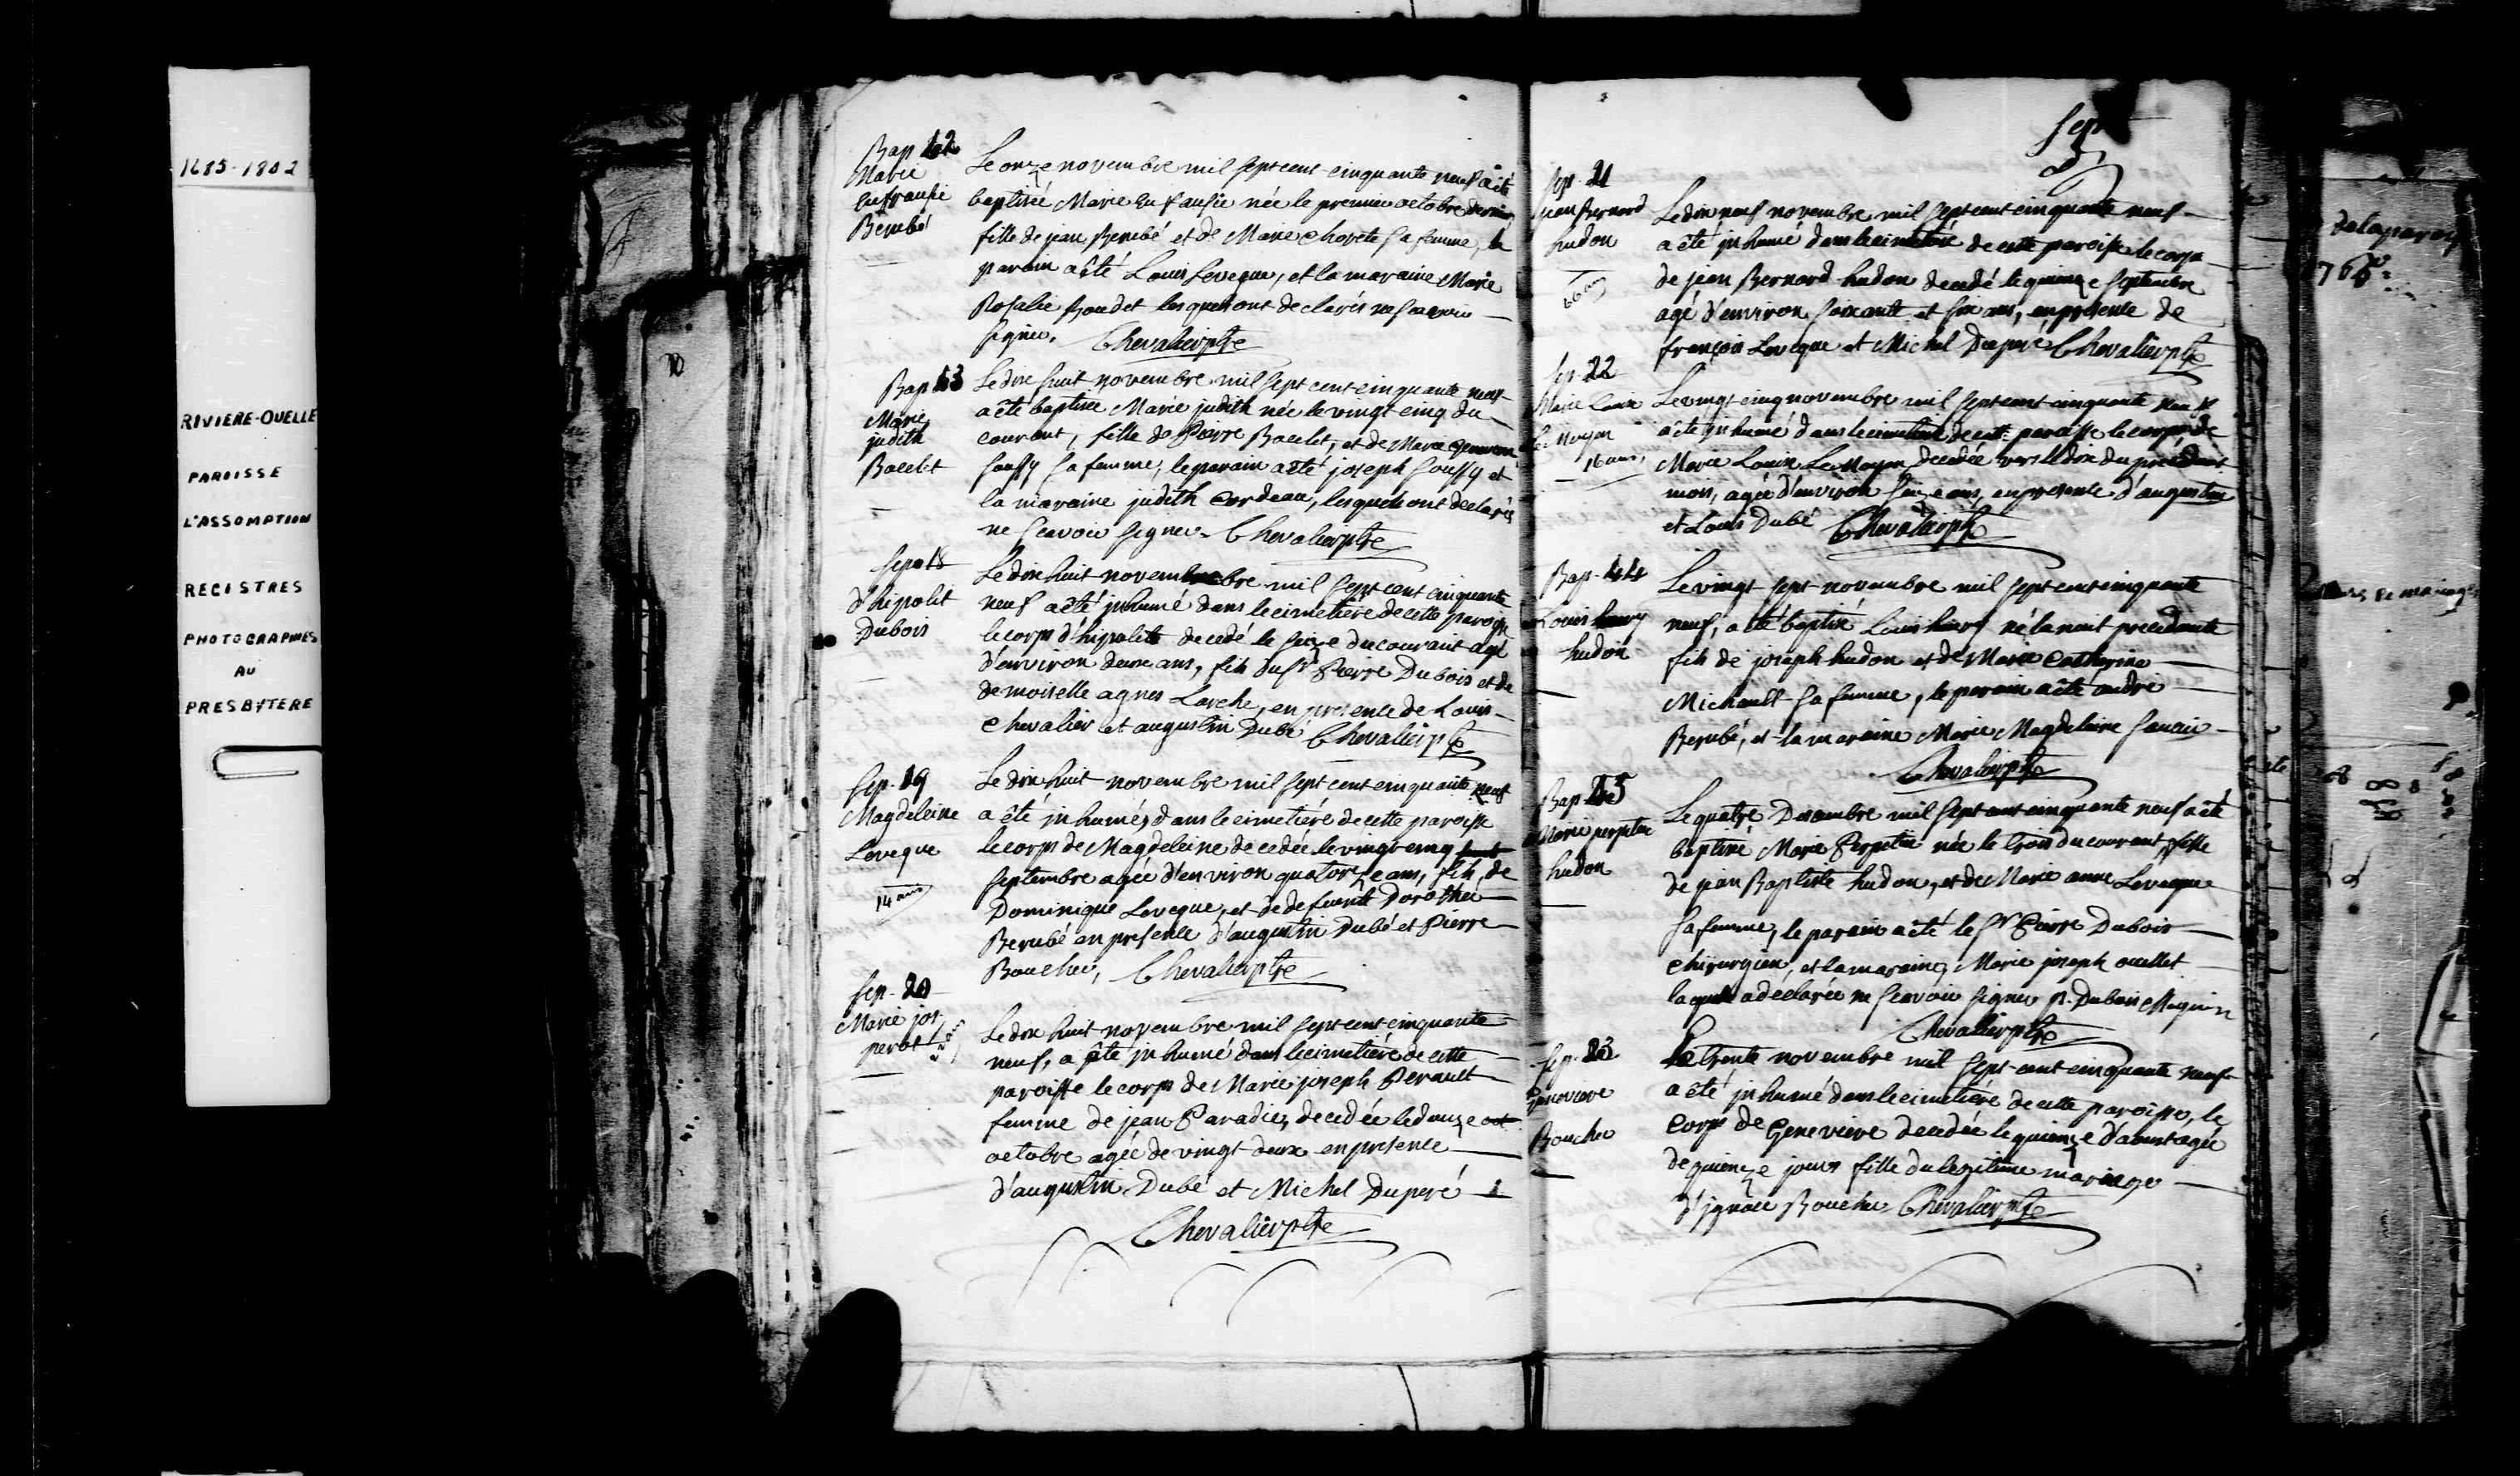 1685-1802
RIVIERE-OUELLE
PAROISSE
L'ASSOMPTION
REGISTRES
PHOTOGRAPHIES
AU
PRESBYTERE
Bap 42
Marie
Eufrausie
Berubé
Le onze novembre mil sept cent cinquante neuf a été
baptisée Marie Eufrausie née le premier octobre dernier
fille de jean Berubé et de Marie Chorete sa femme, le
parain a été Louis Leveque, et la maraine Marie
Rosalie Boudet lesquels ont declarés ne scavoir
signer. Chevalier ptre
Bap 43
Marie
judith
Bacelet
Le dix huit novembre mil sept cent cinquante neuf
a été baptisée Marie judith née le vingt cinq du
courant, fille de Pierre Bacelet, et de Marie Genevieve
soussy sa femme, le parain a été joseph soussy et
la maraine judith Cordeau, lesquels ont declarés
ne scavoir signer. Chevalier ptre
Sep 18
d'hipolit
Dubois
Le dix huit novembrebre mil sept cent cinquante
neuf a été inhumé dans le cimetiere de cette paroisse
le corps d'hipolite decedé le seize du courant agé
d'environ deux ans, fils du sr Pierre Dubois et de
demoiselle agnes Larche, en presence de Louis
Chevalier et augustin Dubé Chevalier ptre
Sep. 19
Magdeleine
Leveque
14 ans
Le dix huit novembre mil sept cent cinquante neuf
a été inhumée dans le cimetiére de cette paroisse
le corps de Magdeleine decedée le vingt cinq
septembre agée d'environ quatorze ans, fils de
Dominique Leveque, et de defeunte Dorothée
Berubé en presence d'augustin Dubé et Pierre
Boucher, Chevalier ptre
Sep. 20
Marie jos.
perot
Le dix huit novembre mil sept cent cinquante
neuf, a été inhumé dans le cimetiére de cette
paroisse le corps de Marie joseph Perault
femme de jean Paradis, decedée le douze oct
octobre agée de vingt deux en presence
d'augustin Dubé et Michel Duperé
Chevalier ptre
Sep
Sep. 21
jean Bernard
hudon
66 ans
Le dix neuf novembre mil sept cent cinquante neuf
a été inhumé dans le cimetiére de cette paroisse le corps
de jean Bernard hudon decedé le quinze septembre
agé d'environ soixante et six ans, en presence de
françois Leveque et Michel Duperé Chevalier ptre
Sep. 22
Marie Louise
Le Moyen
16 ans
Le vingt cinq novembre mil sept cent cinquante neuf
a été inhumé dans le cimetiere de cette paroisse le corps de
Marie Louise Le Moyen decedée vers le dix du précédent
mois, agée d'environ seize ans, en presence d'augustin
et Louis Dubé Chevalier ptre
Bap. 44
Louis henry
hudon
Le vingt sept novembre mil sept cent cinquante
neuf, a été baptisé Louis henry né la nuit precedente
fils de joseph hudon et de Marie Catherine
Michault sa femme, le parain a été andré
Berubé, et la maraine Marie Magdeleine
Chevalier ptre
Bap 45
Marie perpetue
hudon
Le quatre Decembre mil sept cent cinquante neuf a été
baptisé Marie Perpetue née le trois du courant fille
de jean Baptiste hudon, et de Marie anne Leveque
sa femme, le parain a été le Sr Pierre Dubois
chirurgien, et la maraine, Marie joseph ouellet
laquelle a declarée ne scavoir signer P. Dubois
Chevalier ptre
Sep. 23
Genevieve
Boucher
Le trente novembre mil sept cent cinquante neuf
a été inhumé dans le cimetiére de cette paroisse, le
corps de Genevieve decedée le quienze d'aoust agée
de quienze jours fille du legitime mariage
d'ignace Boucher Chevalier ptre